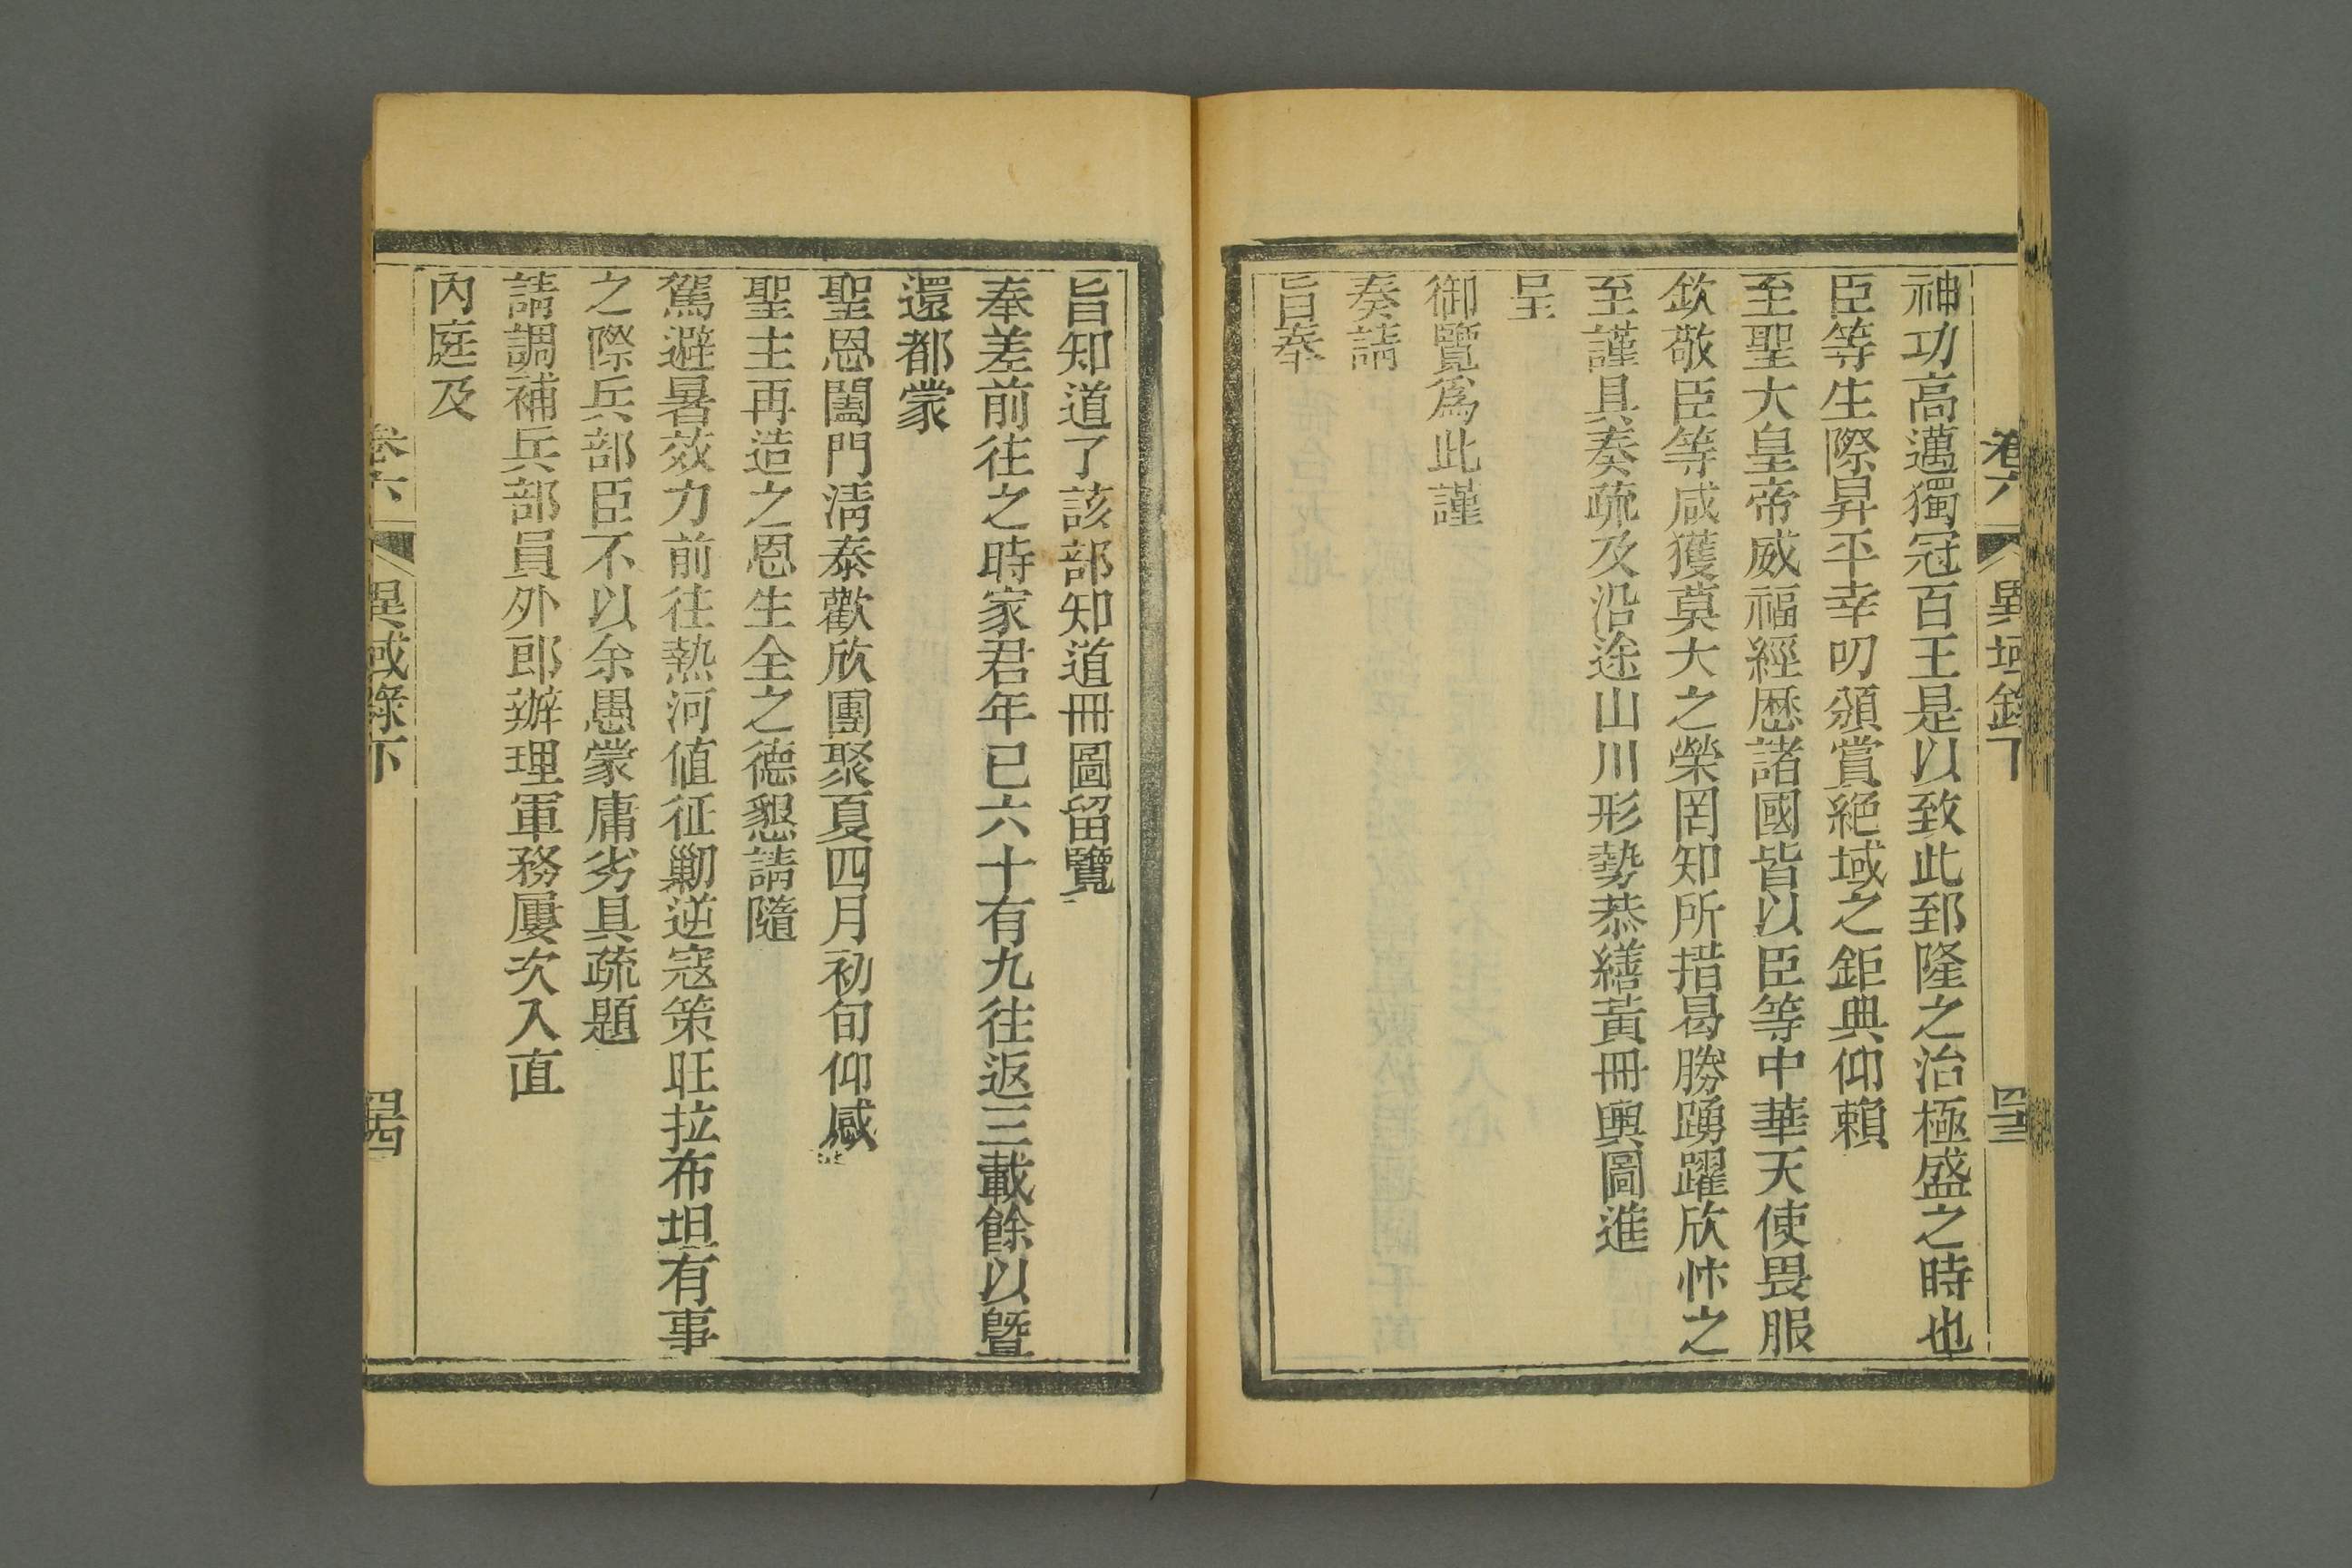 卷六 異域錄下 四三
神功高邁獨冠百王是以致此郅隆之治極盛之時也
臣等生際昇平幸叨頒賞絕域之鉅典仰賴
至聖大皇帝威福經歷諸國皆以臣等中華天使畏服
欽敬臣等咸獲莫大之榮罔知所措曷勝踴躍欣忭之
至謹具奏疏及沿途山川形勢恭繕黃冊輿圖進
呈
御覽爲此謹
奏請
旨奉
旨知道了該部知道冊圖留覽
奉差前往之時家君年已六十有九往返三載餘以曁
還都蒙
聖恩闔門淸泰歡欣團聚夏四月初旬仰感
聖主再造之恩生全之德懇請隨
駕避暑效力前往熱河値征勦逆寇策旺拉布坦有事
之際兵部臣不以余愚蒙庸劣具疏題
請調補兵部員外郎辦理軍務屢次入直
內庭及
卷六 異域錄下 四四